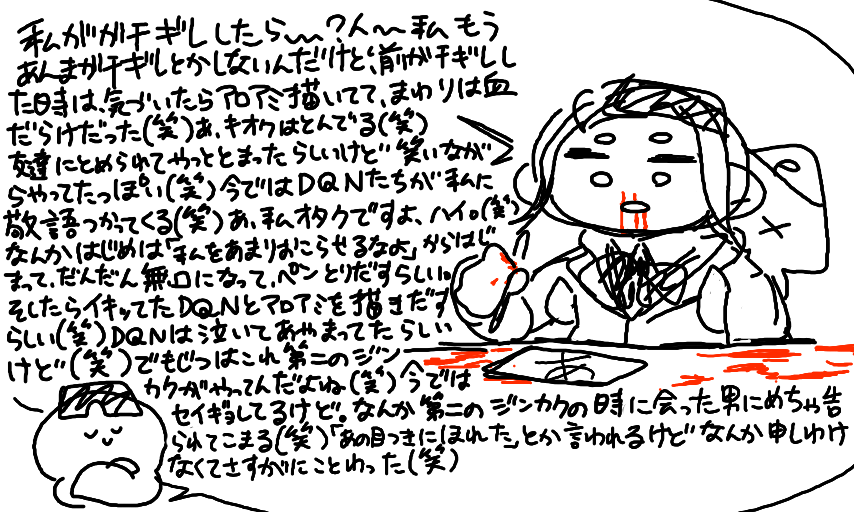 私がガチギレしたら〜〜?ん〜私もう
あんまガチギレとかしないんだけど、前ガチギレし
た時は、気づいたらアロアミ描いてて、まわりは血
だらけだった(笑)あ、キオクはとんでる(笑)
友達にとめられてやっととまったらしいけど笑いなが
らやってたっぽい(笑)今ではDQNたちが私に
敬語つかってくる(笑)あ、私オタクですよ、ハイ。(笑)
なんかはじめは「私をあまりおこらせるなよ」からはじ
まって、だんだん無口になって、ペンとりだすらしい。
そしたらイキッてたDQNとアロアミを描きだす
らしい(笑)DQNは泣いてあやまってたらしい
けど(笑)でもじつはこれ第二のジン
カクがやってんだよね(笑)今では
セイギョしてるけど。なんか第二のジンカクの時に会った男にめちゃ告
られてこまる(笑)「あの目つきにほれた」とか言われるけどなんか申しわけ
なくてさすがにことわった(笑)
あ